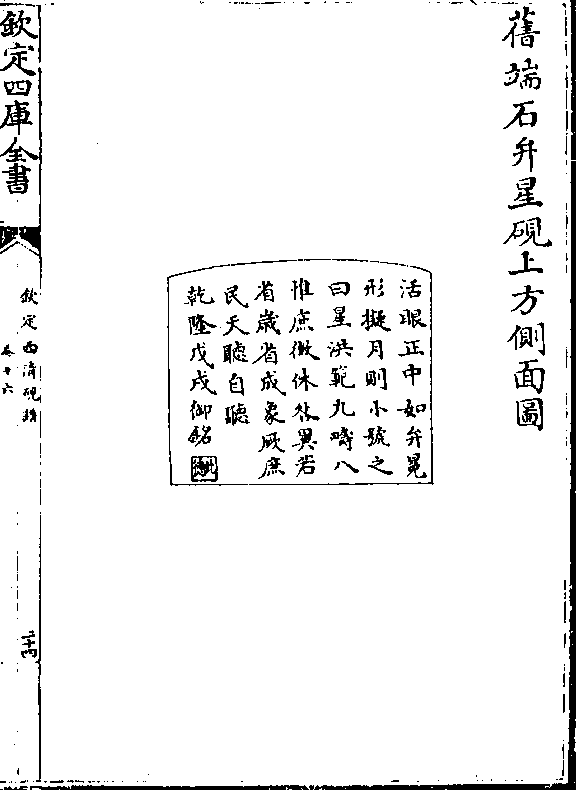 舊端石弁星硯上方側面圖
活眼正中如弁冕
形擬月則小號之
曰星洪範九疇八
惟庶徵休咎異若
省歲省成象厥庶
民天聽自聽
乾隆戊戌御銘
欽定四庫全書
欽定西清硯譜
卷十六
二十四